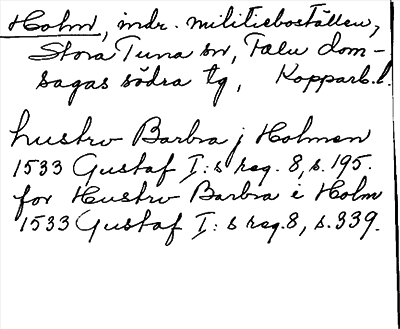 Holm, indr. militieboställen,
Stora Tuna sn, Falu dom-
sagas södra tg, Kopparb.l.
hustrv Barbra j Holmen
1533 Gustaf I:s reg. 8, s. 195.
for Hustrv Barbra i Holm
1533 Gustaf I:s reg. 8, s. 339.